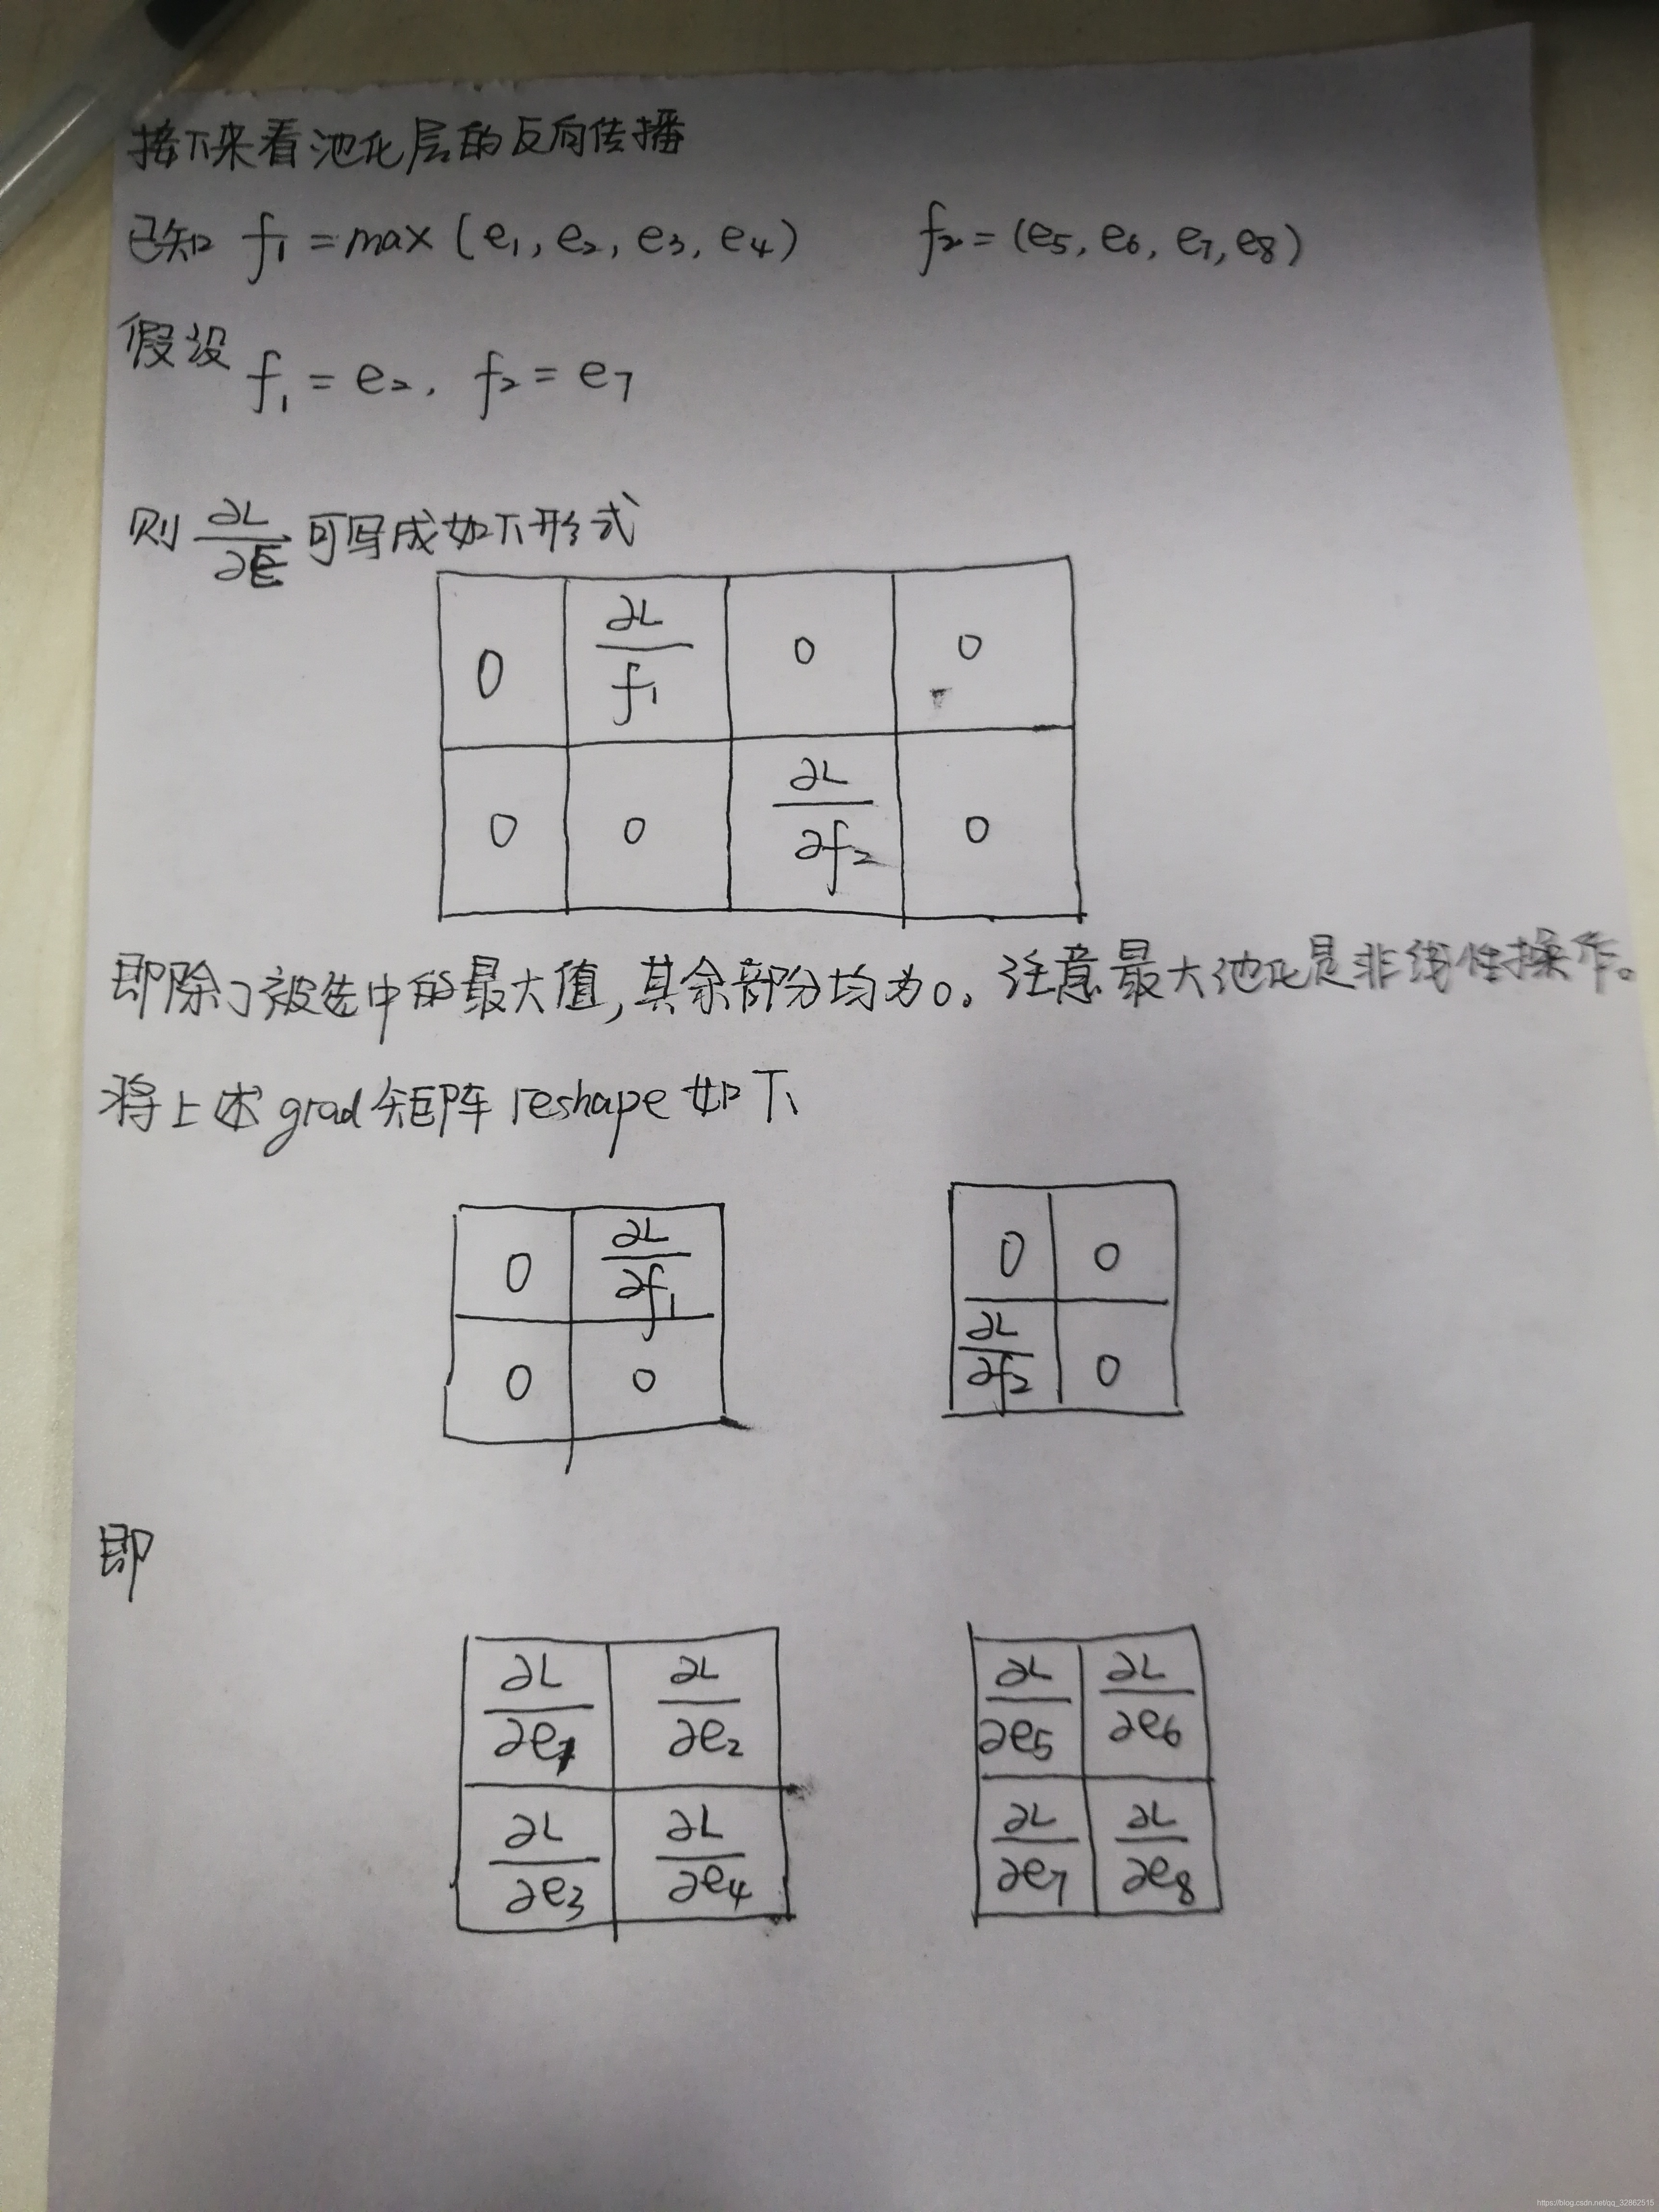 接下来看池化层的反向传播
已知 f₁ = max (e₁, e₂, e₃, e₄) f₂ = (e₅, e₆, e₇, e₈)
假设 f₁ = e₂, f₂ = e₇
则 ∂L/∂E 可写成如下形式
0 ∂L/f₁ 0 0
0 0 ∂L/∂f₂ 0
即除了被选中的最大值,其余部分均为0。注意最大池化是非线性操作。
将上述grad矩阵reshape如下
0 ∂L/∂f₁ 0 0
0 0 ∂L/∂f₂ 0
即
∂L/∂e₁ ∂L/∂e₂ ∂L/∂e₅ ∂L/∂e₆
∂L/∂e₃ ∂L/∂e₄ ∂L/∂e₇ ∂L/∂e₈
https://blog.csdn.net/qq_32862515